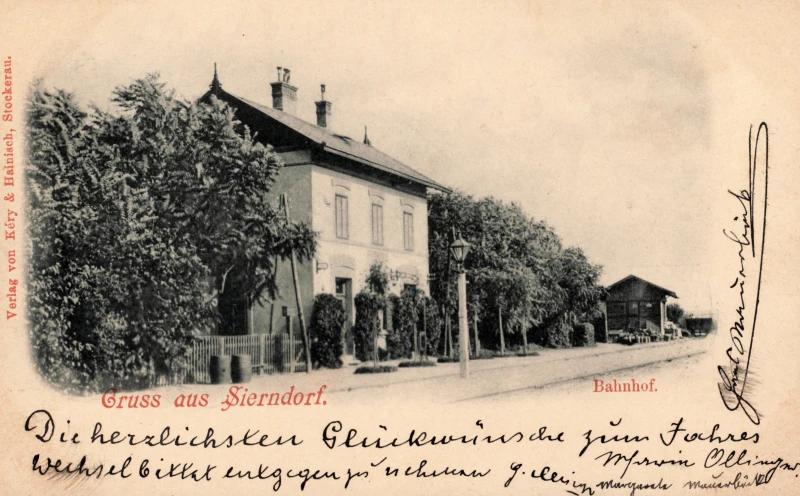 Verlag von Kéry & Hainisch, Stockerau.
Gruss aus Sierndorf.
Bahnhof.
Die herzlichsten Glückwünsche zum Jahres
Wechsel bittet entgegen zu nehmen
Marie Ollinger
Margarete Mauerböck
Mauerböck